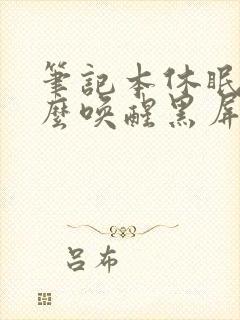 筆記本休眠
麼喚醒黑屏
呂布